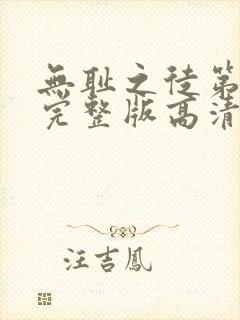 無耻之徒第
完整版高清
汪吉鳳